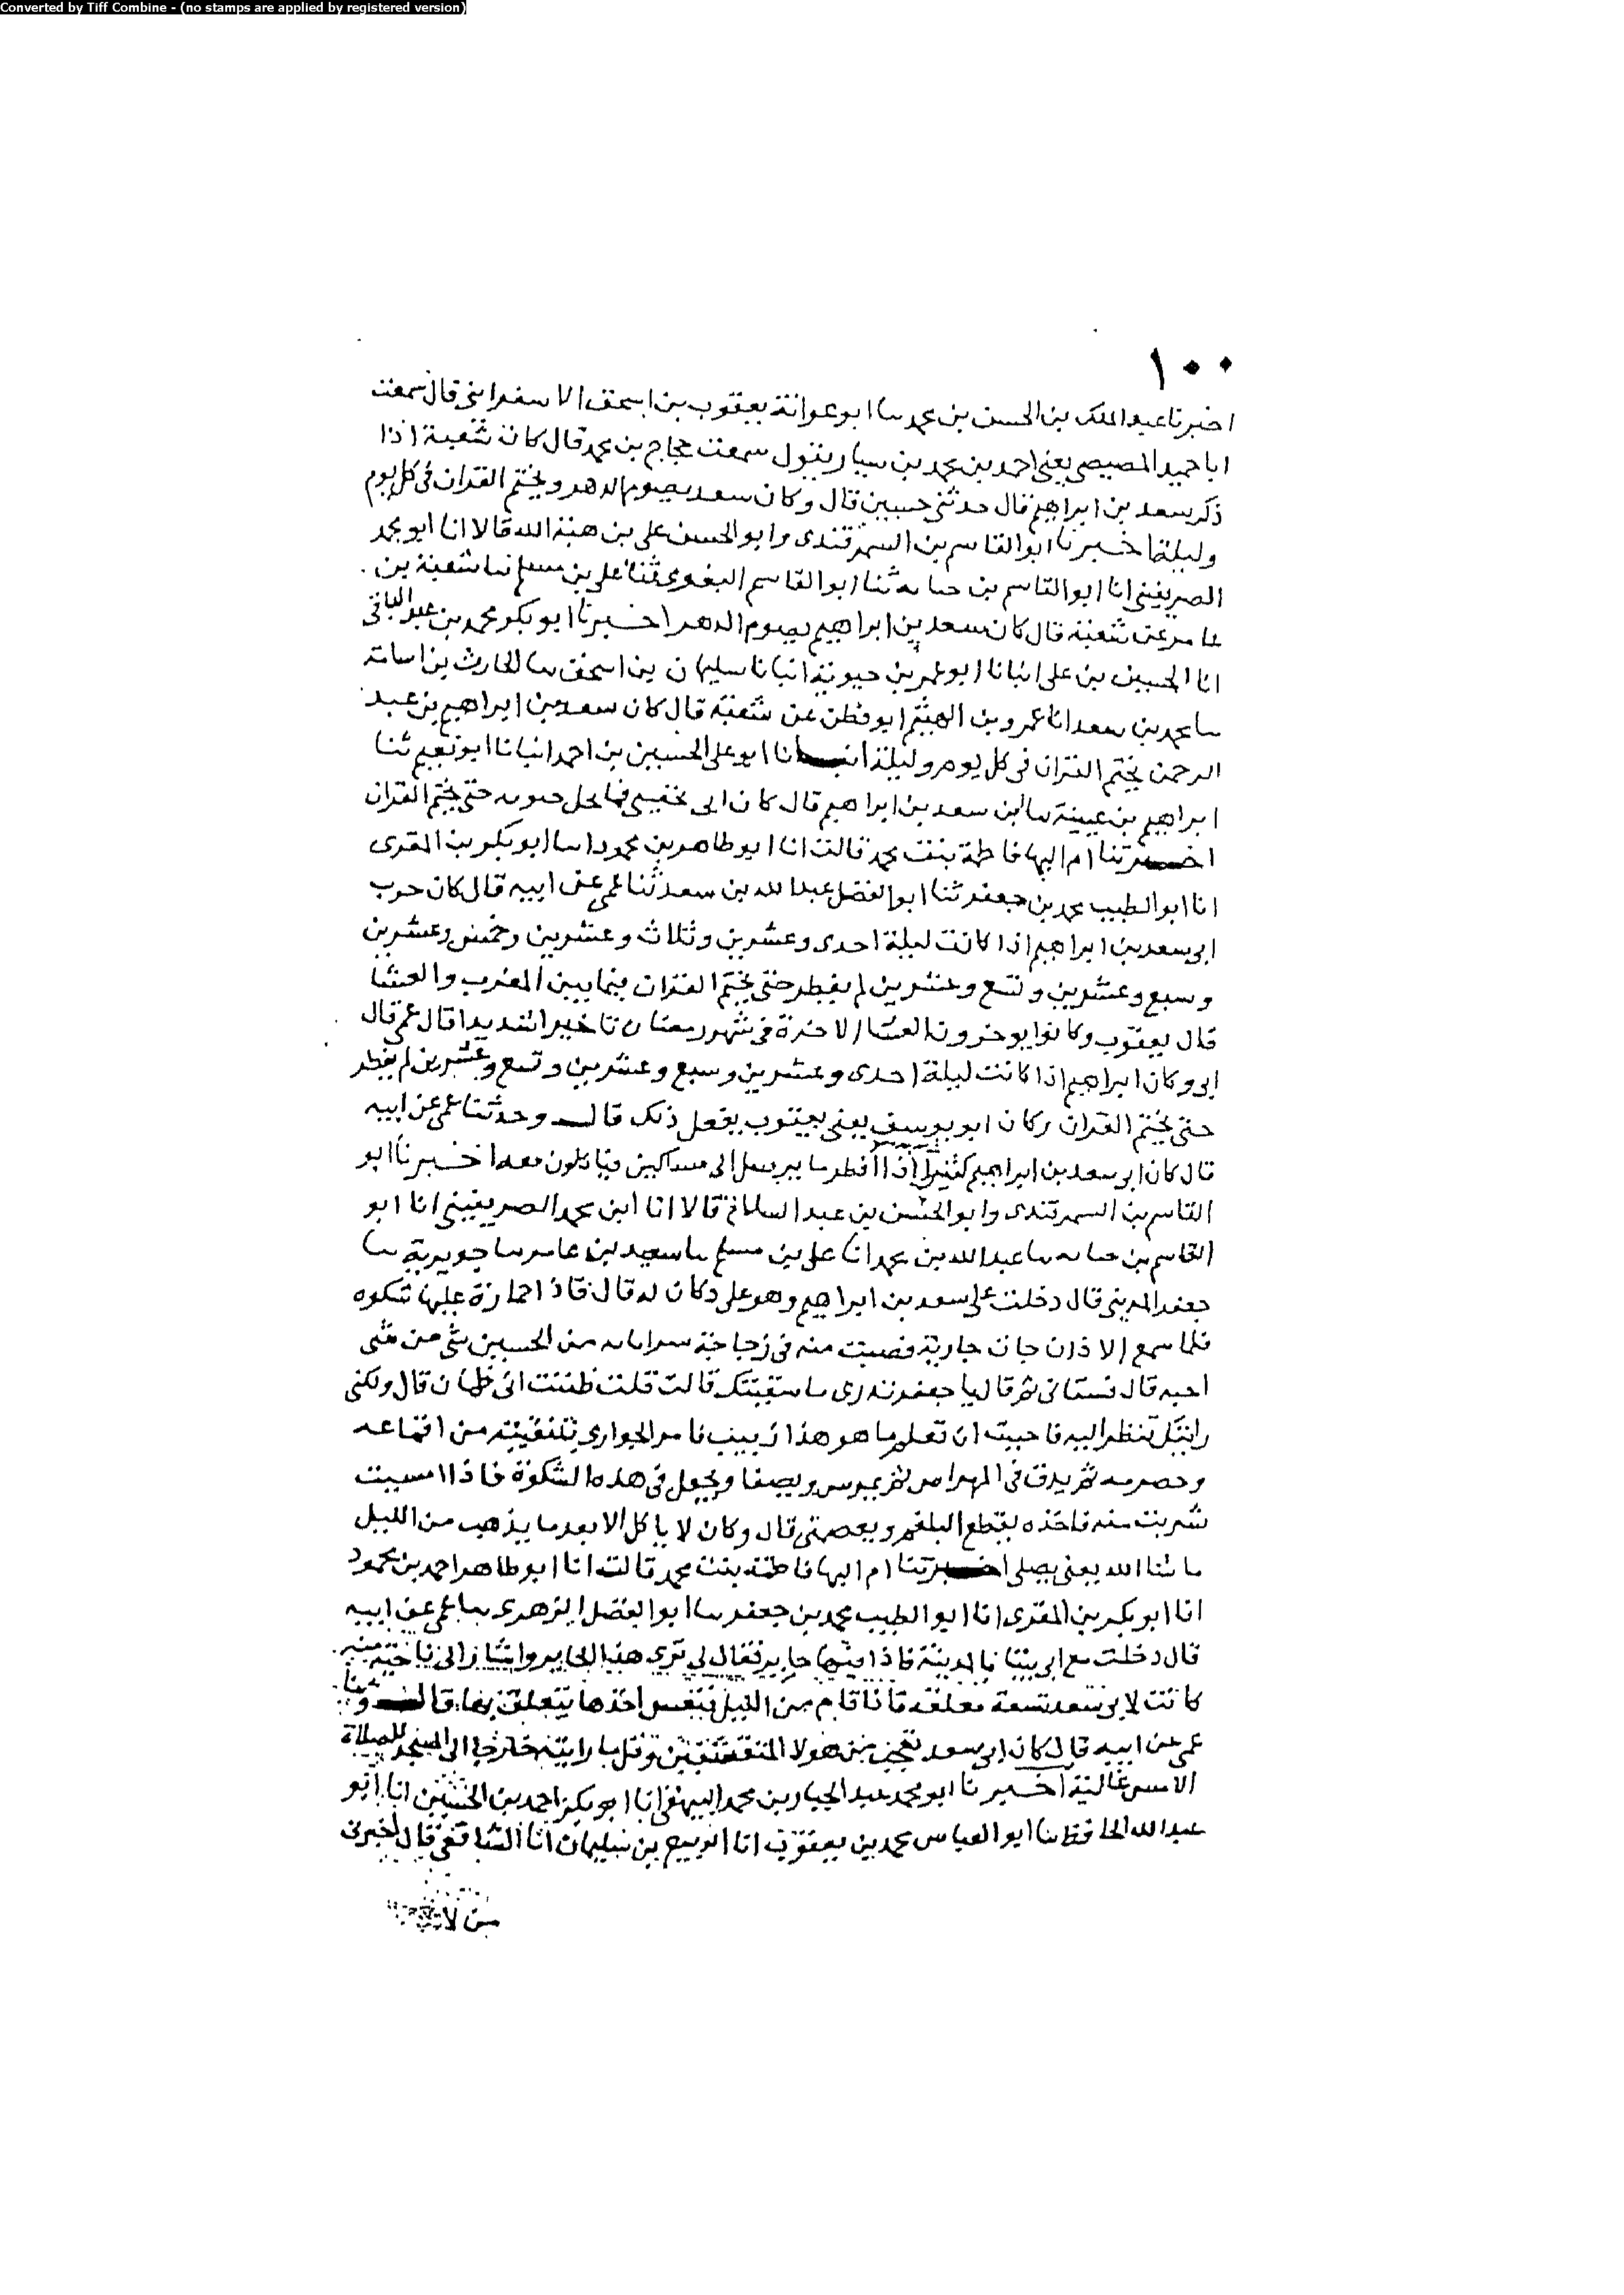 Converted by Tiff Combine - (no stamps are applied by registered version)
١٠٠
اخبرنا عبد الملك بن الحسن بن محمد سا ابو عوانة يعقوب بن اسحق الاسفراينى قال سمعت
ابا حميد المصيصى يعنى احمد بن محمد بن سيار يقول سمعت حجاج بن محمد قال كان شعبة اذا
ذكر سعد بن ابراهيم قال حدثنى حبيبى قال وكان سعد يصوم الدهر ويختم القران فى كل يوم
وليلة اخبرنا ابو القاسم بن السمرقندى وابو الحسن على بن هبة الله قالا انا ابو محمد
الصريفينى انا ابو القاسم بن حبابه ثنا ابو القاسم البغوى ثنا على بن مسلم نا شعبة بن
عامر عن شعبة قال كان سعد بن ابراهيم يصوم الدهر اخبرنا ابو بكر محمد بن عبد الباقى
انا الحسين بن على انبانا ابو عمر بن حيوية انبانا سليمان بن اسحق سا الحارث بن اسامة
سا محمد بن سعد انا عمرو بن الهيثم ابو قطن عن شعبة قال كان سعد بن ابراهيم بن عبد
الرحمن يختم القران فى كل يوم وليلة انبانا ابو على الحسين بن احمد انبانا ابو نعيم ثنا
ابراهيم بن عيينة سا ابن سعد بن ابراهيم قال كان ابى يحتبى فما يحل حبوته حتى يختم القران
اخبرتنا ام البها فاطمة بنت محمد قالت انا ابو طاهر بن محمود اسا ابو بكر بن المقرى
انا ابو الطيب محمد بن جعفر ثنا ابو الفضل عبد الله بن سعد ثنا عمى عن ابيه قال كان حزب
ابى سعد بن ابراهيم اذا كانت ليلة احدى وعشرين وثلاث وعشرين وخمس وعشرين
وسبع وعشرين وتسع وعشرين لم يفطر حتى يختم القران فيما بين المغرب والعشا
قال يعقوب وكانوا يوخرون العشا الاخرة فى شهر رمضان تاخيرا شديدا قال عمى قال
ابى وكان ابراهيم اذا كانت ليلة احدى وعشرين وسبع وعشرين وتسع وعشرين لم يفطر
حتى يختم القران وكان ابو يوسف يعنى يعقوب يفعل ذلك قال وحدثنا عمى عن ابيه
قال كان ابى سعد بن ابراهيم كثيرا اذا افطر ما يرسل الى مساكين فياكلون معه اخبرنا ابو
القاسم بن السمرقندى وابو الحسن بن عبد السلام قالا انا ابن محمد الصريفينى انا ابو
القاسم بن حبابه سا عبد الله بن محمد انا على بن مسلم سا سعيد بن عامر سا جويرية سا
جعفر المدينى قال دخلت على سعد بن ابراهيم وهو على دكان له قال فاذا حمازة عليها شكوه
فلما سمع الاذان جات جارية فصبت منه فى زجاجة من الحسين شى من شى
احبه قال فسقانى ثم قال يا جعفر تدرى ما سقيتك قالت قلت ظننت انى ظمان قال ولكنى
رايتك تنظر اليه فاحببت ان تعلم ما هو هذا زبيب نامر الجوارى تلتقينه من اقماعه
وحصرمه ثم يدق فى المهراس ثم يمرس ويصفا ويجعل فى هذه الشكوة فاذا امسيت
شربت منه فاخذه يقطع البلغم ويعصمنى قال وكان لا ياكل الا بعد ما يذهب من الليل
ما شا الله يعنى يصلى اخبرتنا ام البها فاطمة بنت محمد قالت انا ابو طاهر احمد بن محمود
انا ابو بكر بن المقرى انا ابو الطيب محمد بن جعفر سا ابو الفضل الزهرى سا عمى عن ابيه
قال دخلت مع ابى بيتا بالمدينة فاذا فيها حاير فقال لى ترى هذا الحاير واشار الى ناحية منه
كانت لابى سعد تسعة معلقة فاذا قام من الليل فنعس اخذها يتعلق بها قال وثنا
عمى عن ابيه قال كان ابى سعد تعجب من هولا المتقشفين وقل ما رايته خارجا الى المسجد للصلاة
الا مس غالية اخبرنا ابو محمد عبد الجبار بن محمد البيهقى انا ابو بكر احمد بن الحسين انا ابو
عبد الله الحافظ سا ابو العباس محمد بن يعقوب انا الربيع بن سليمان انا الشافعى قال اخبرنى
من لا